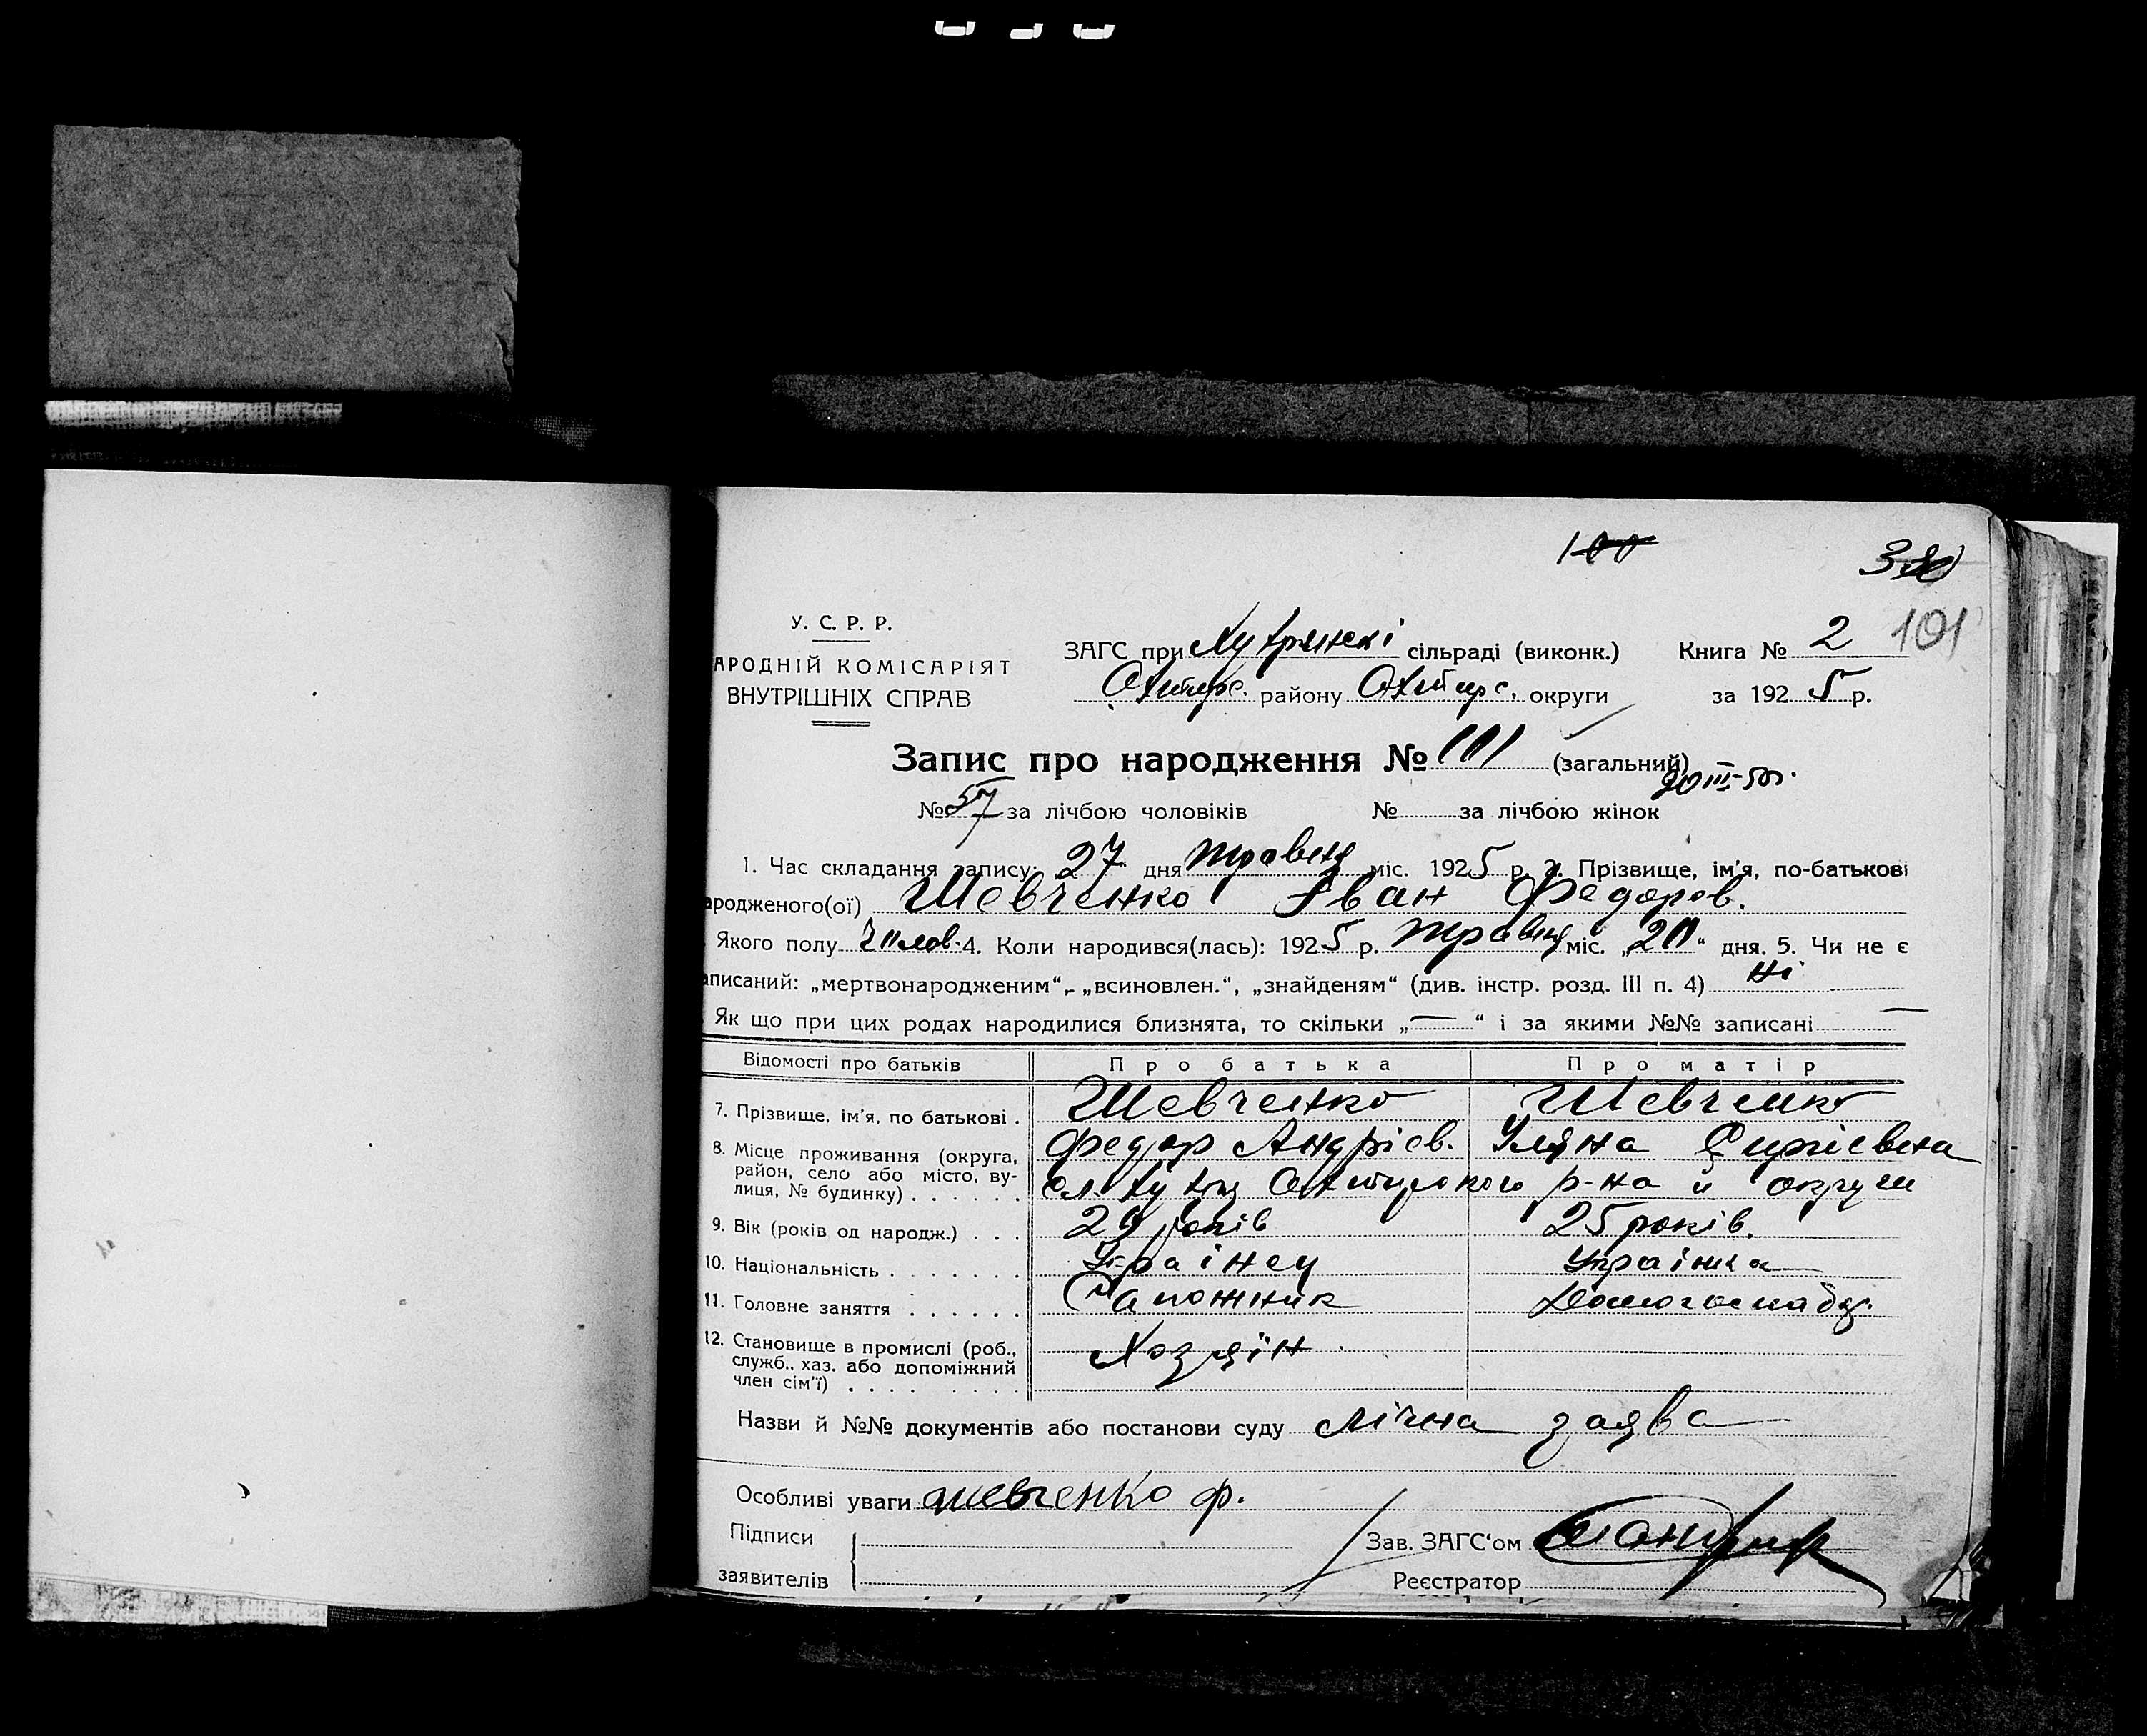 100
380
101
У. С. Р. Р.
АРОДНІЙ КОМІСАРІЯТ
ВНУТРІШНІХ СПРАВ
ЗАГС при Хутрянскі сільраді (виконк.) Книга № 2
Охтирс. району Охтирс. округи за 1925 р.
Запис про народження № 101 (загальний)
№ 57 за лічбою чоловіків № за лічбою жінок
1. Час складання запису: 27 дня травня міс. 1925 р. 2. Прізвище, ім'я, по-батькові
ародженого(ої) Шевченко Іван Федоров.
Якого полу чолов. 4. Коли народився(лась): 1925 р. травня міс. „20“ дня. 5. Чи не є
аписаний: „мертвонародженим“, „всиновлен.“, „знайденям“ (див. інстр. розд. III п. 4) Ні
Як що при цих родах народилися близнята, то скільки „—“ і за якими №№ записані —
Відомості про батьків Про батька Про матір
7. Прізвище, ім'я, по батькові . Шевченко Шевченко
Федор Андрієв. Уляна
8. Місце проживання (округа, район, село або місто, ву-
лиця, № будинку) . . . . . . сл. Охтирского р-на й округи
9. Вік (років од народж.) . . . 29 років 25 років.
10. Національність . . . . . . . Українец Українка
11. Головне заняття . . . . . . Сапожник Домогоспадр.
12. Становище в промислі (роб.,
служб., хаз. або допоміжний Хозяїн
член сім'ї) . . . . . . . . .
Назви й №№ документів або постанови суду Лічна заява
Особливі уваги Шевченко Ф.
Підписи Зав. ЗАГС'ом
заявителів Реєстратор